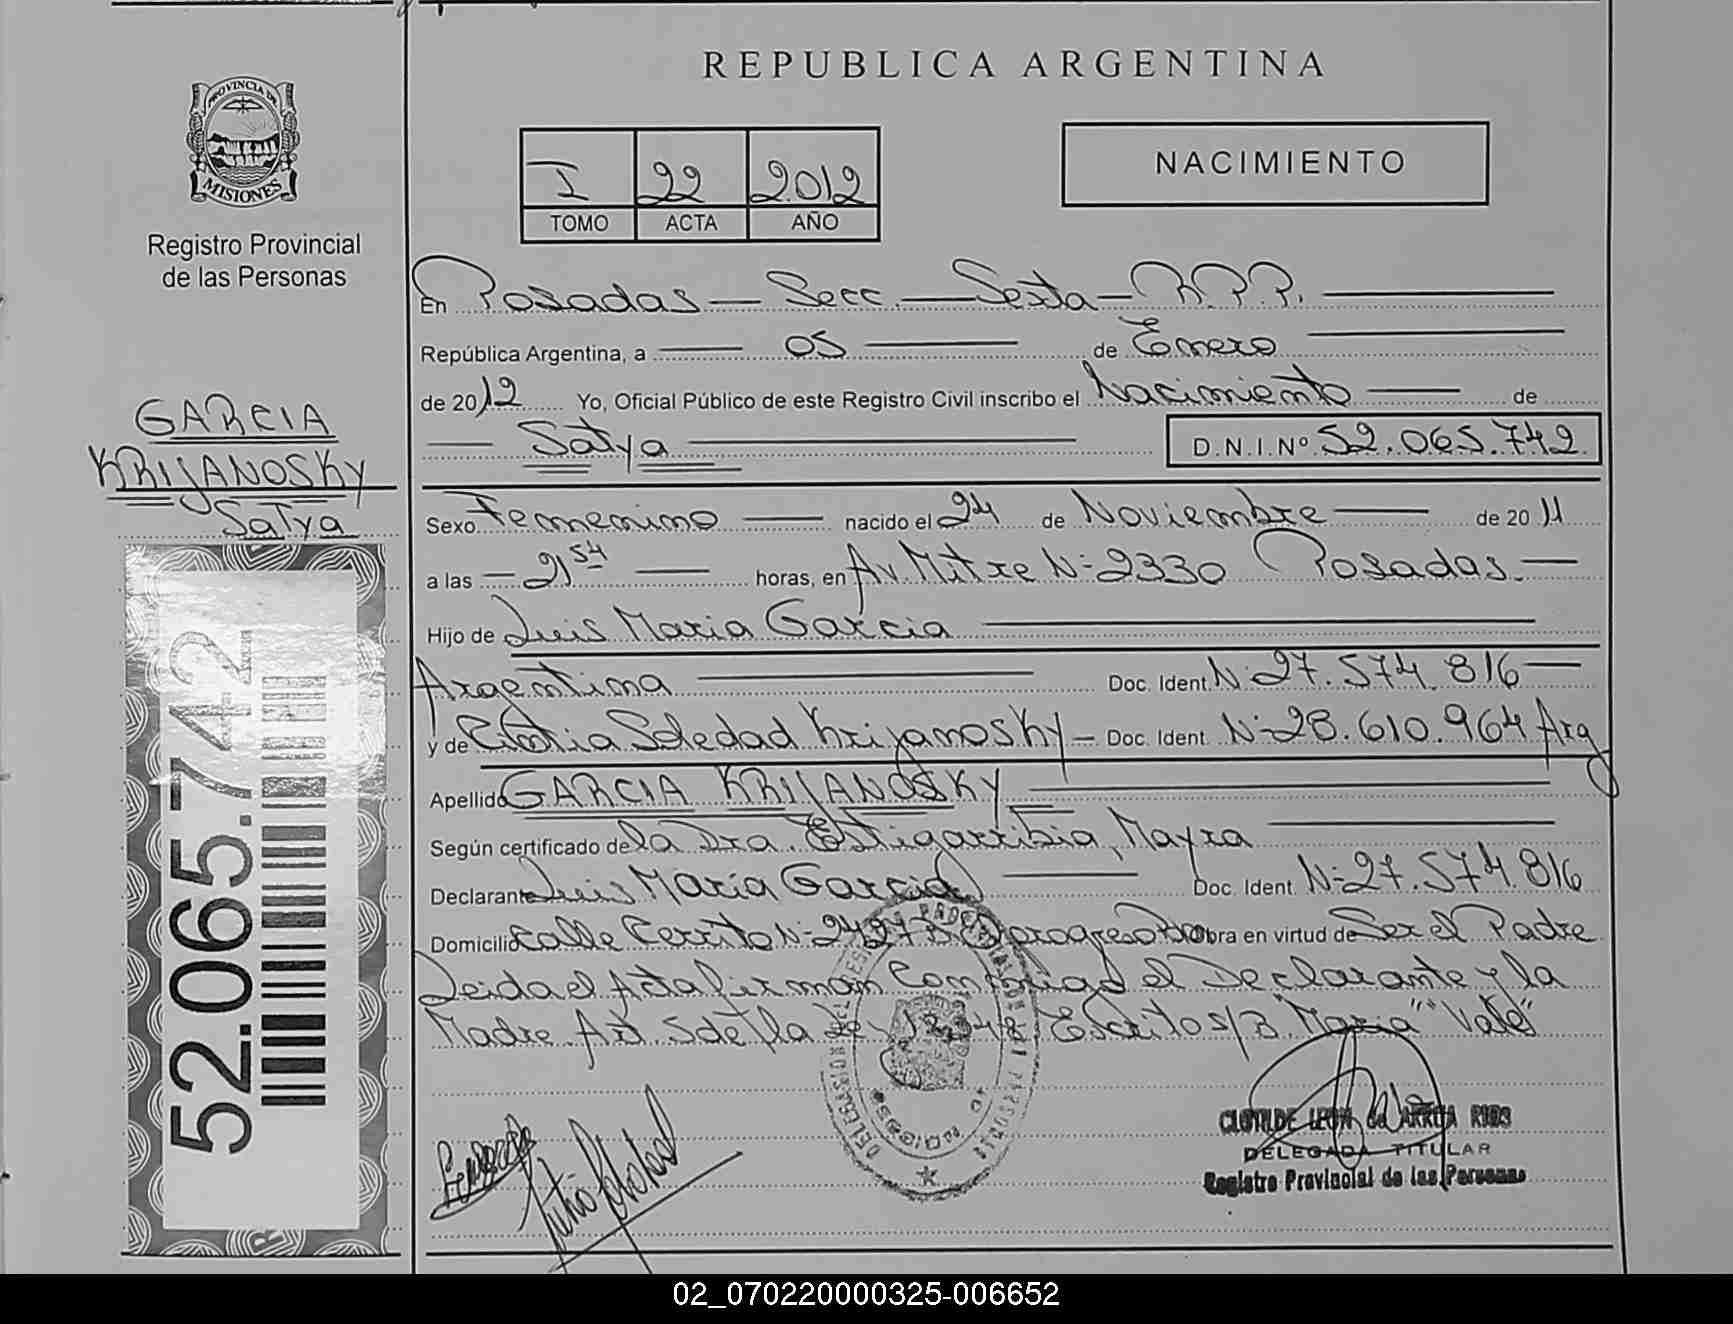 REPUBLICA ARGENTINA
PROVINCIA DE
MISIONES
Registro Provincial
de las Personas
I 22 2.012
TOMO ACTA AÑO
NACIMIENTO
En Posadas — Secc. — Sexta — R.P.P.
República Argentina, a 05 de Enero
de 2012 Yo, Oficial Público de este Registro Civil inscribo el Nacimiento de
Satya D.N.I.Nº 52.065.742
GARCIA
KRIJANOSKY
Satya
52.065.742
Sexo Femenino nacido el 24 de Noviembre de 2011
a las 21 54 horas, en Av. Mitre Nº 2330 Posadas.
Hijo de Luis Maria Garcia
Argentina Doc. Ident. Nº 27.574.816
y de Soledad Krijanosky — Doc. Ident. Nº 28.610.964 Arg
Apellido GARCIA KRIJANOSKY
Según certificado de la Dra. Estigarribia, Mayra
Declarante Luis María Garcia Doc. Ident. Nº 27.574.816
Domicilio Calle Cerrito Nº Obra en virtud de Ser el Padre
Leida el Acta firman Conmigo el Declarante y la
Madre Escrito s/B "Maria" "Vale"
CLOTILDE
DELEGADA TITULAR
Registro Provincial de las Personas
02_070220000325-006652